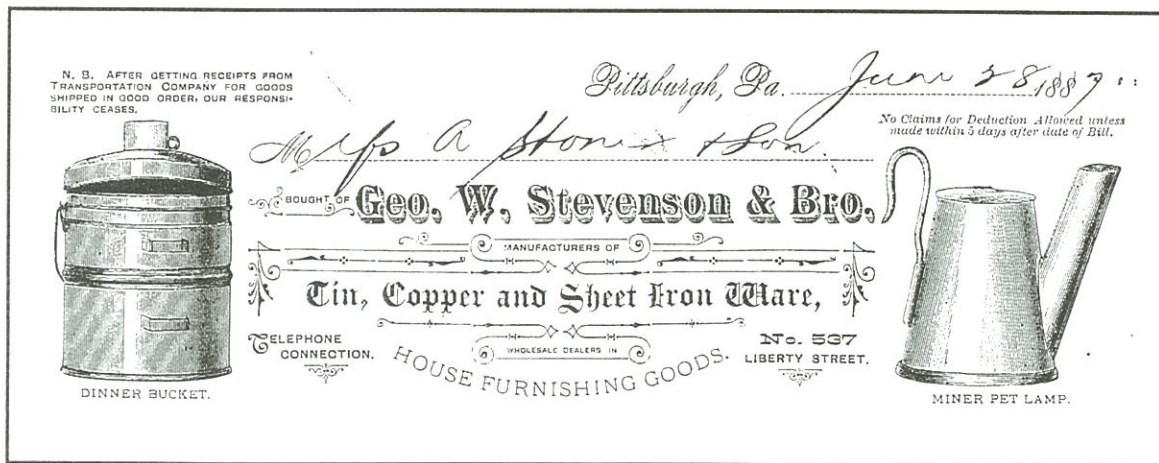 N. B. AFTER GETTING RECEIPTS FROM
TRANSPORTATION COMPANY FOR GOODS
SHIPPED IN GOOD ORDER, OUR RESPONSI-
BILITY CEASES.
Pittsburgh, Pa. June 28 1887
No Claims for Deduction Allowed unless
made within 5 days after date of Bill.
A & Son.
BOUGHT OF Geo. W. Stevenson & Bro.,
MANUFACTURERS OF
Tin, Copper and Sheet Iron Ware,
TELEPHONE
CONNECTION.
WHOLESALE DEALERS IN
HOUSE FURNISHING GOODS.
No. 537
LIBERTY STREET.
DINNER BUCKET.
MINER PET LAMP.